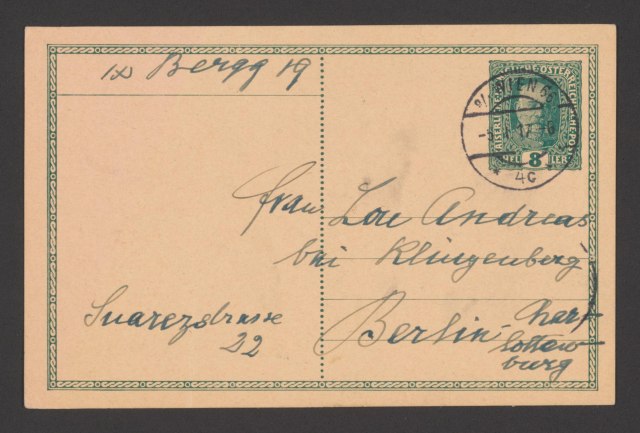 IX Bergg 19
KAISERLICHE KÖNIGLICHE ÖSTERREICHISCHE POST
8
HELLER
9/1 WIEN 66
17
4c
Frau Lou Andreas
bei Klingenberg
Suarezstrasse
22
Berlin-Charlottenburg